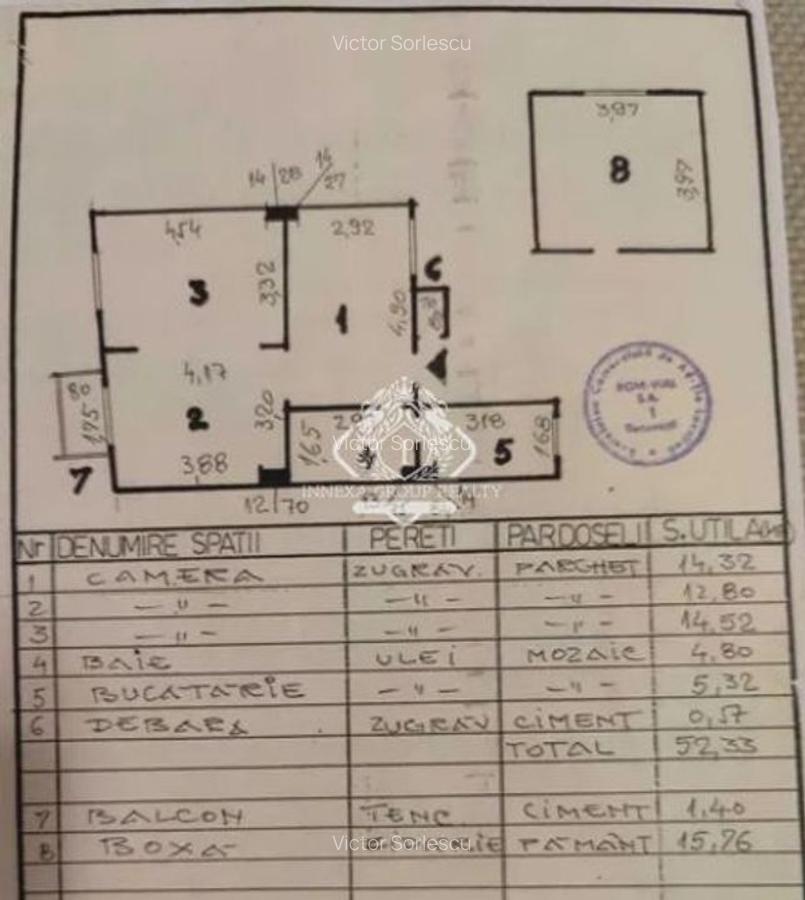 Victor Sorlescu
3,97
8
3,97
14 28 14
27
4,54
2,92
6
3
3,32
1
4,90
4,17
80
1,75
2
3,20
3,88
7
1,65
Victor Sorlescu
3,18
5
1,68
INNEXA GROUP REALTY
12 70
Nr DENUMIRE SPATII PERETI PARDOSELI S.UTILA
1 CAMERA ZUGRAV. PARCHET 14,32
2 — " — — " — — " — 12,80
3 — " — — " — — " — 14,52
4 BAIE ULEI MOZAIC 4,80
5 BUCATARIE — " — — " — 5,32
6 DEBARA ZUGRAV CIMENT 0,57
TOTAL 52,33
7 BALCON TENC. CIMENT 1,40
8 BOXA PAMANT 15,76
Victor Sorlescu